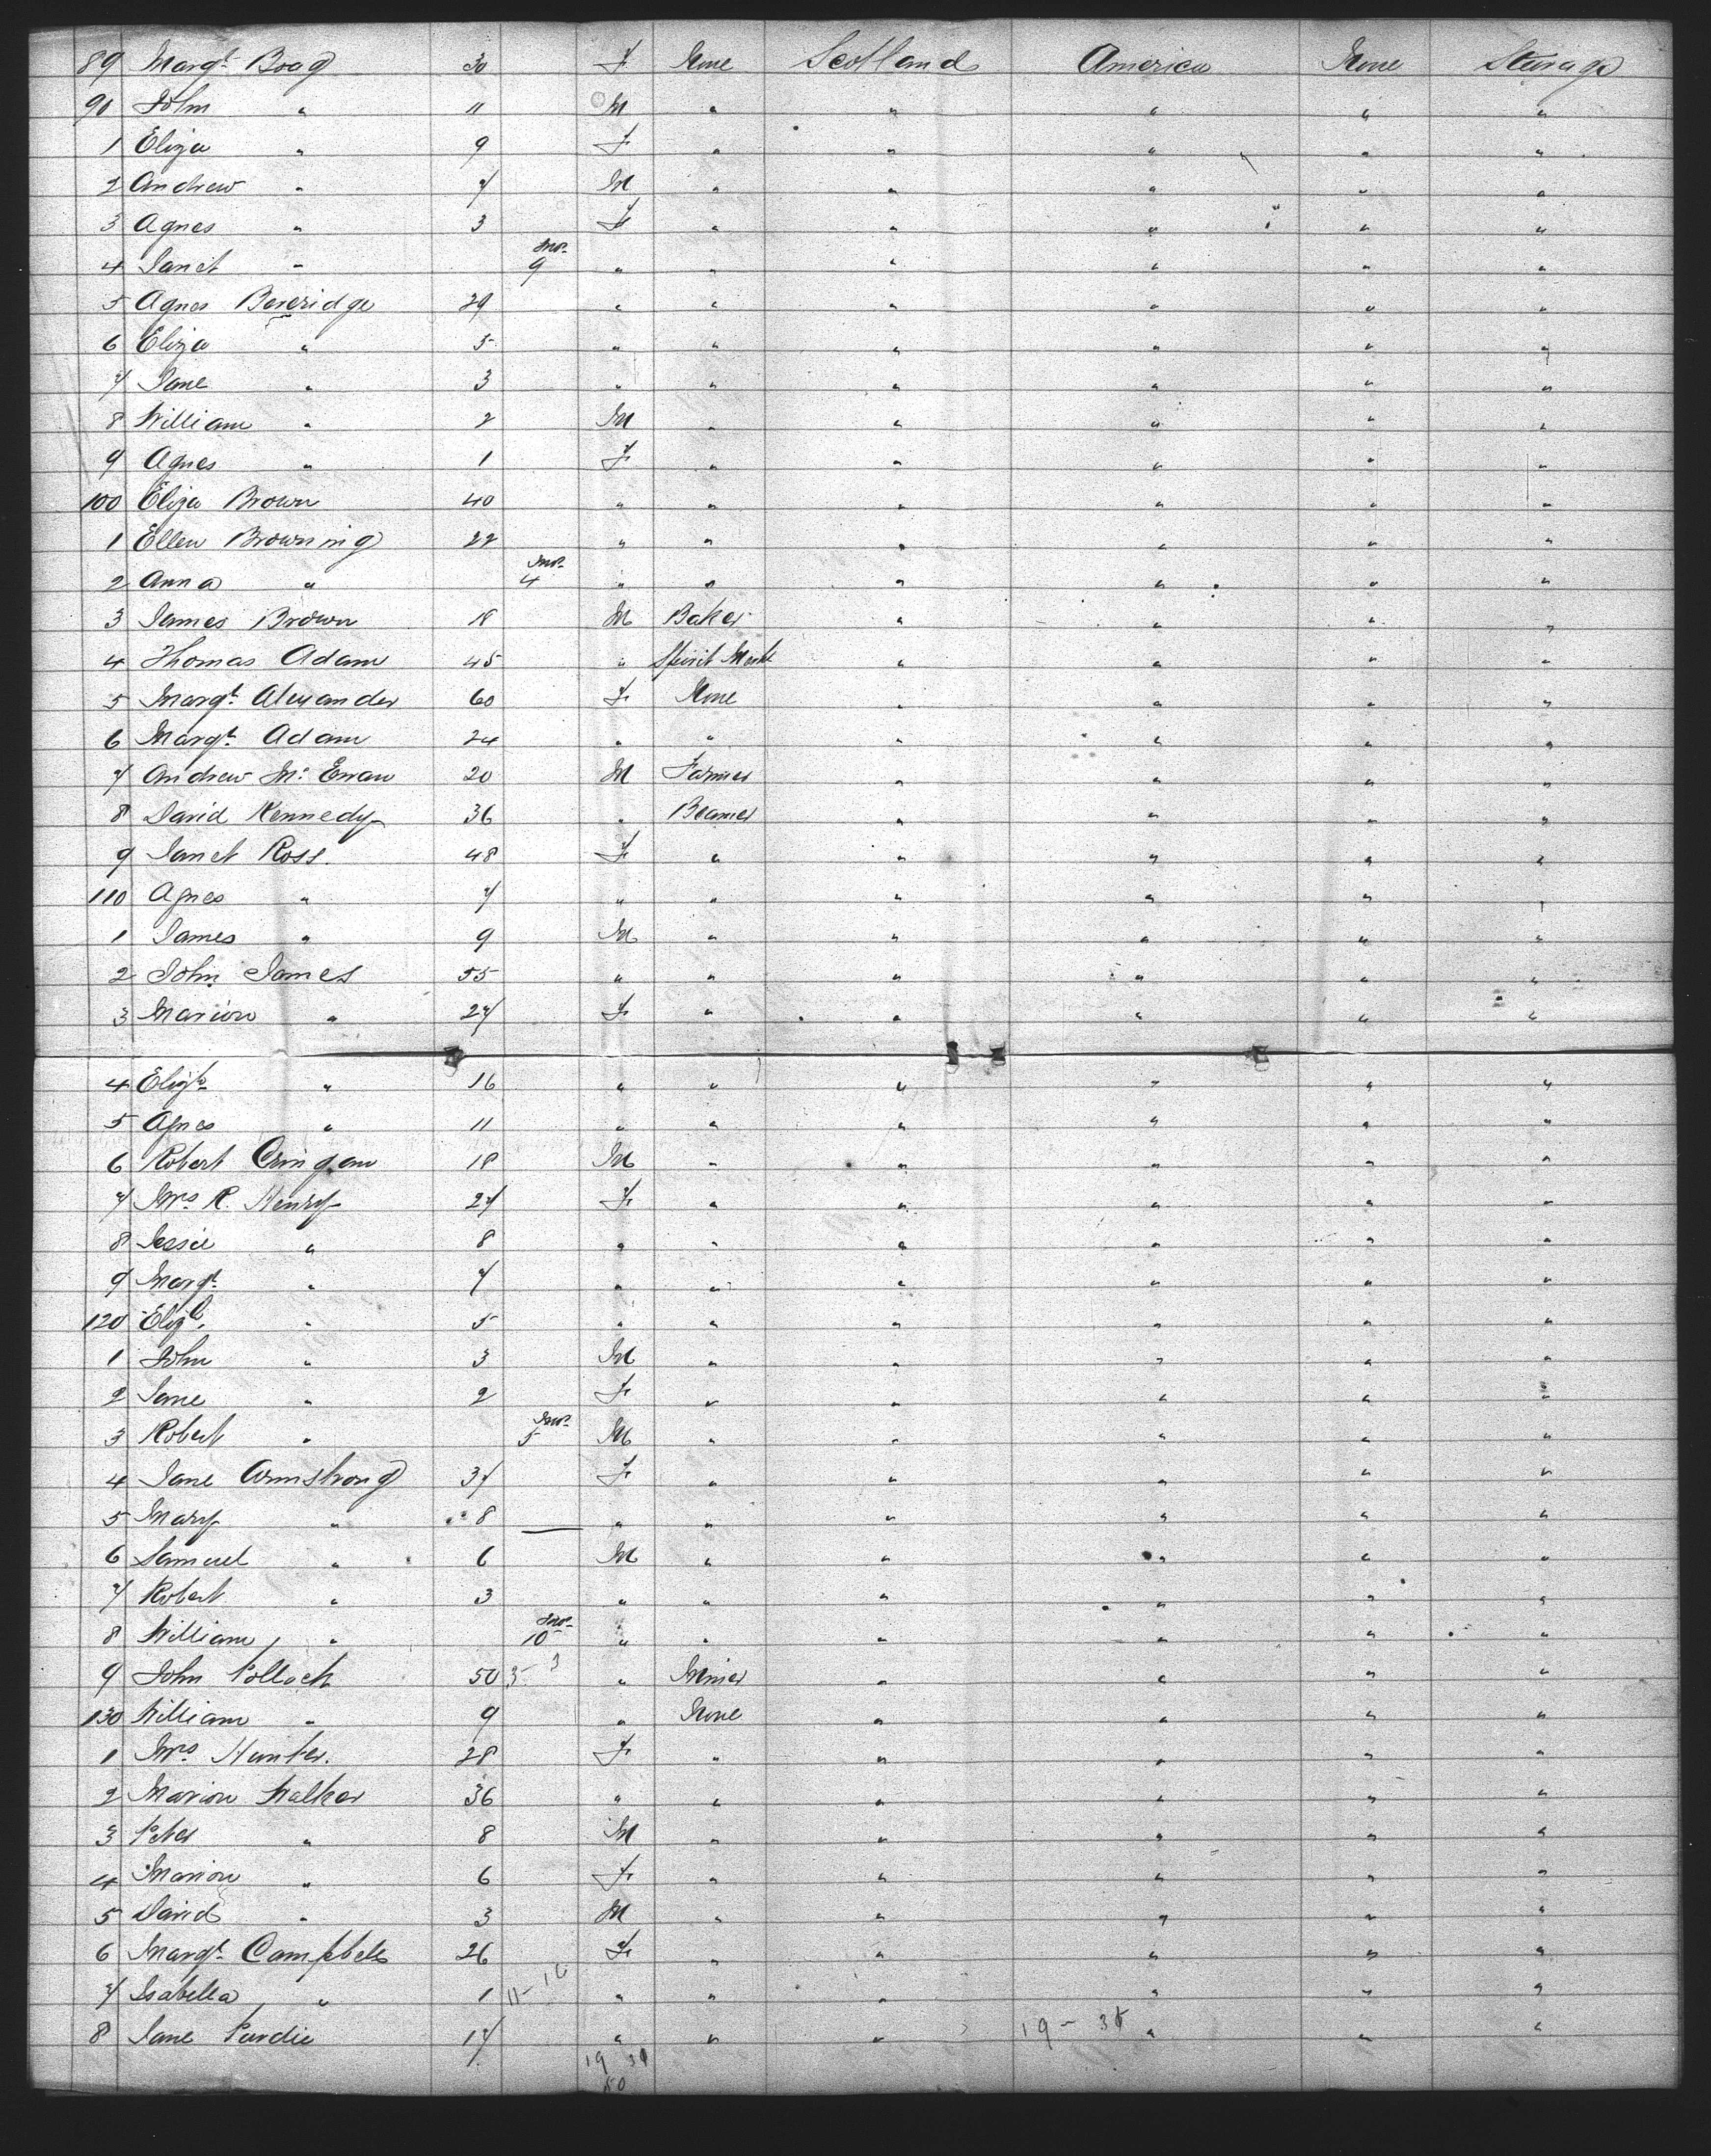 89 Margt. Boag 30 F None Scotland America None Steerage
90 John " 11 M " " " " "
1 Eliza " 9 F " " " " "
2 Andrew " 7 M " " " " "
3 Agnes " 3 F " " " " "
4 Janet " Mos. 9 " " " " " "
5 Agnes Beveridge 29 " " " " " "
6 Eliza " 5 " " " " " "
7 Jane " 3 " " " " " "
8 William " 2 M " " " " "
9 Agnes " 1 F " " " " "
100 Eliza Brown 40 " " " " " "
1 Ellen Browning 22 " " " " " "
2 Anna " Mos. 4 " " " " " "
3 James Brown 18 M Baker " " " "
4 Thomas Adam 45 " Spirit Mercht " " " "
5 Margt. Alexander 60 F None " " " "
6 Margt. Adam 24 " " " " " "
7 Andrew Mc Ewan 20 M Farmer " " " "
8 David Kennedy 36 " Beamer " " " "
9 Janet Ross. 48 F " " " " "
110 Agnes " 7 " " " " " "
1 James " 9 M " " " " "
2 John James 55 " " " " " "
3 Marion " 27 F " " " " "
4 Elizth " 16 " " " " " "
5 Agnes " 11 " " " " " "
6 Robert Cringan 18 M " " " " "
7 Mrs R. Henry 27 F " " " " "
8 Jessie " 8 " " " " " "
9 Margt. " 7 " " " " " "
120 Elizth. " 5 " " " " " "
1 John " 3 M " " " " "
2 Jane " 2 F " " " " "
3 Robert " Mos. 5 M " " " " "
4 Jane Armstrong 37 F " " " " "
5 Mary " 8 " " " " " "
6 Samuel " 6 M " " " " "
7 Robert " 3 " " " " " "
8 William " Mos. 10 " " " " " "
9 John Pollock 50 3- 3 " Miner " " " "
130 William " 9 " None " " " "
1 Mrs Hunter. 28 F " " " " "
2 Marion Walker 36 " " " " " "
3 Peter " 8 M " " " " "
4 Marion " 6 F " " " " "
5 David " 3 M " " " " "
6 Margt. Campbell 26 F " " " " "
7 Isabella " 1 11-16 " " " " " "
8 Jane Purdie 17 " " " 19 - 31 " " "
19 31
50